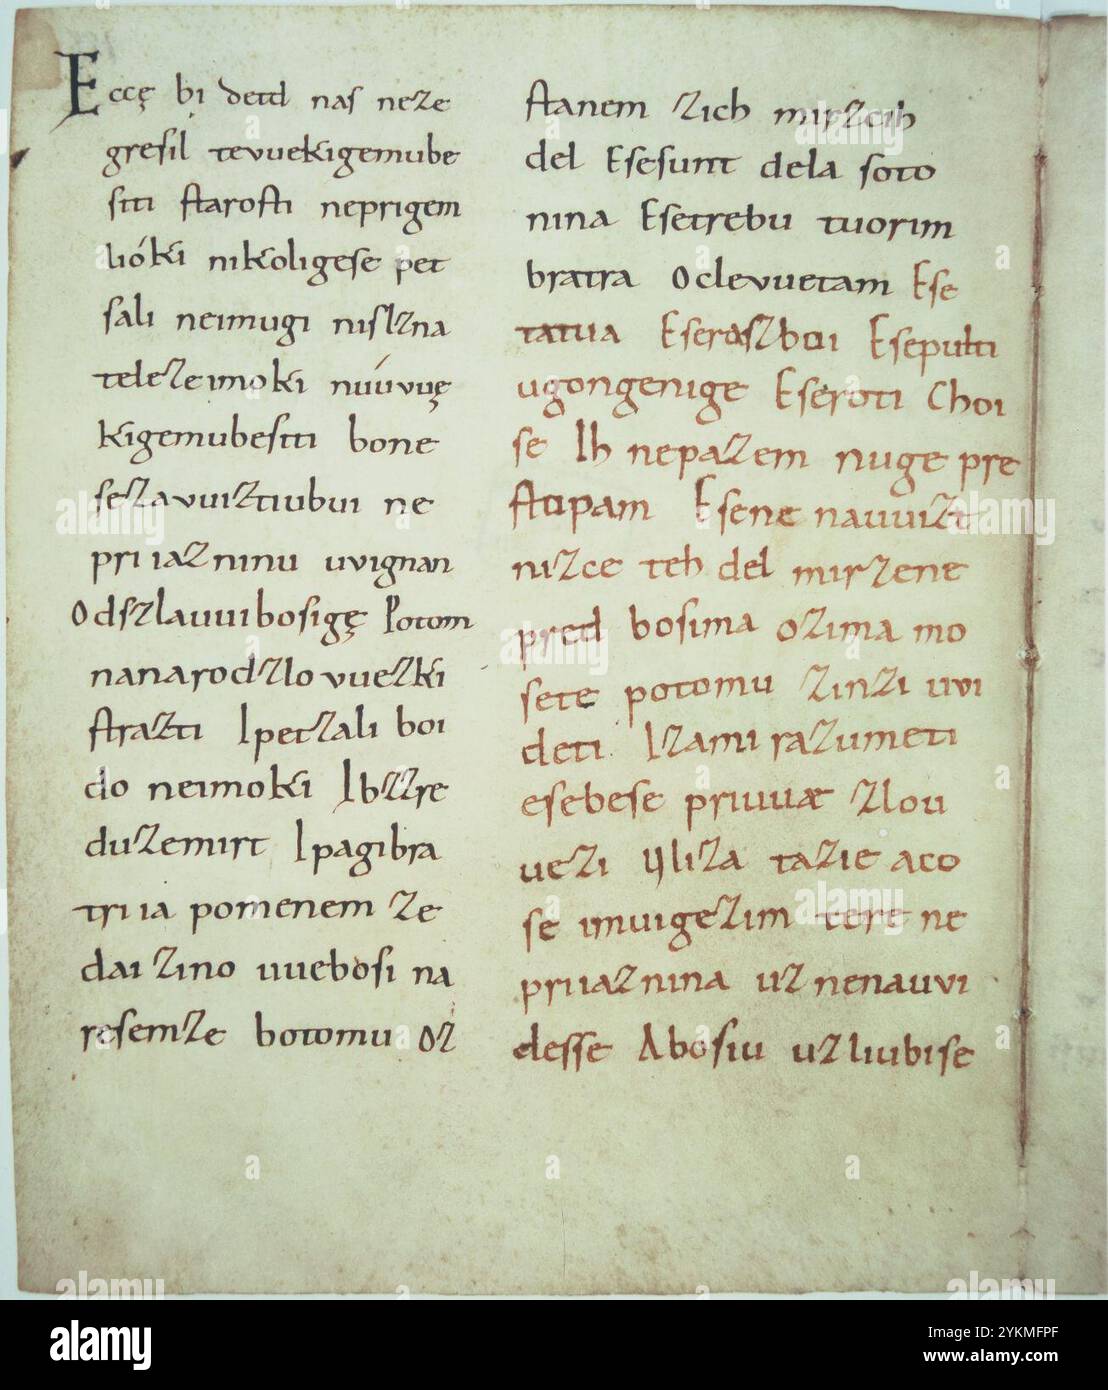 Eccę bi detd naſ neze
greſil tevuekigemube
ſiti ſtaroſti neprigem
lióki nikoligeſe pet
ſali neimugi niſlzna
telezeimoki nuúvuę
kigemubeſiti bone
ſezavuiztiubui ne
priiazninu uvignan
Odszlauuibosigę Potom
nanarodzlo vuezki
ſtrazti Ipetzali boi
do neimoki Ibzzre
duzemirt Ipagibra
triia pomenem ze
dai zino uuebosi na
resemze botomu oz
ſtanem zich mirzcih
del Eſeſunt dela ſoto
nina Eſetrebu tuorim
bratra Oclevuetam Eſe
tatua Eſeraſzboi Eſepulti
ugongenige Eſeroti Choi
ſe Ih nepazem nuge pre
ſtopam Eſene nauuizt
nizce teh del mirzene
pred boſima ozima mo
ſete potomu zinzi uvi
deti Izami razumeti
eſebeſe priuuae zlou
uezi Iliza tazie aco
ſe imuigezim tere ne
priiaznina uz nenauvi
desſe Aboſiu uzliubiſe
alamy
www.alamy.com
Image ID: 2YKMFPF